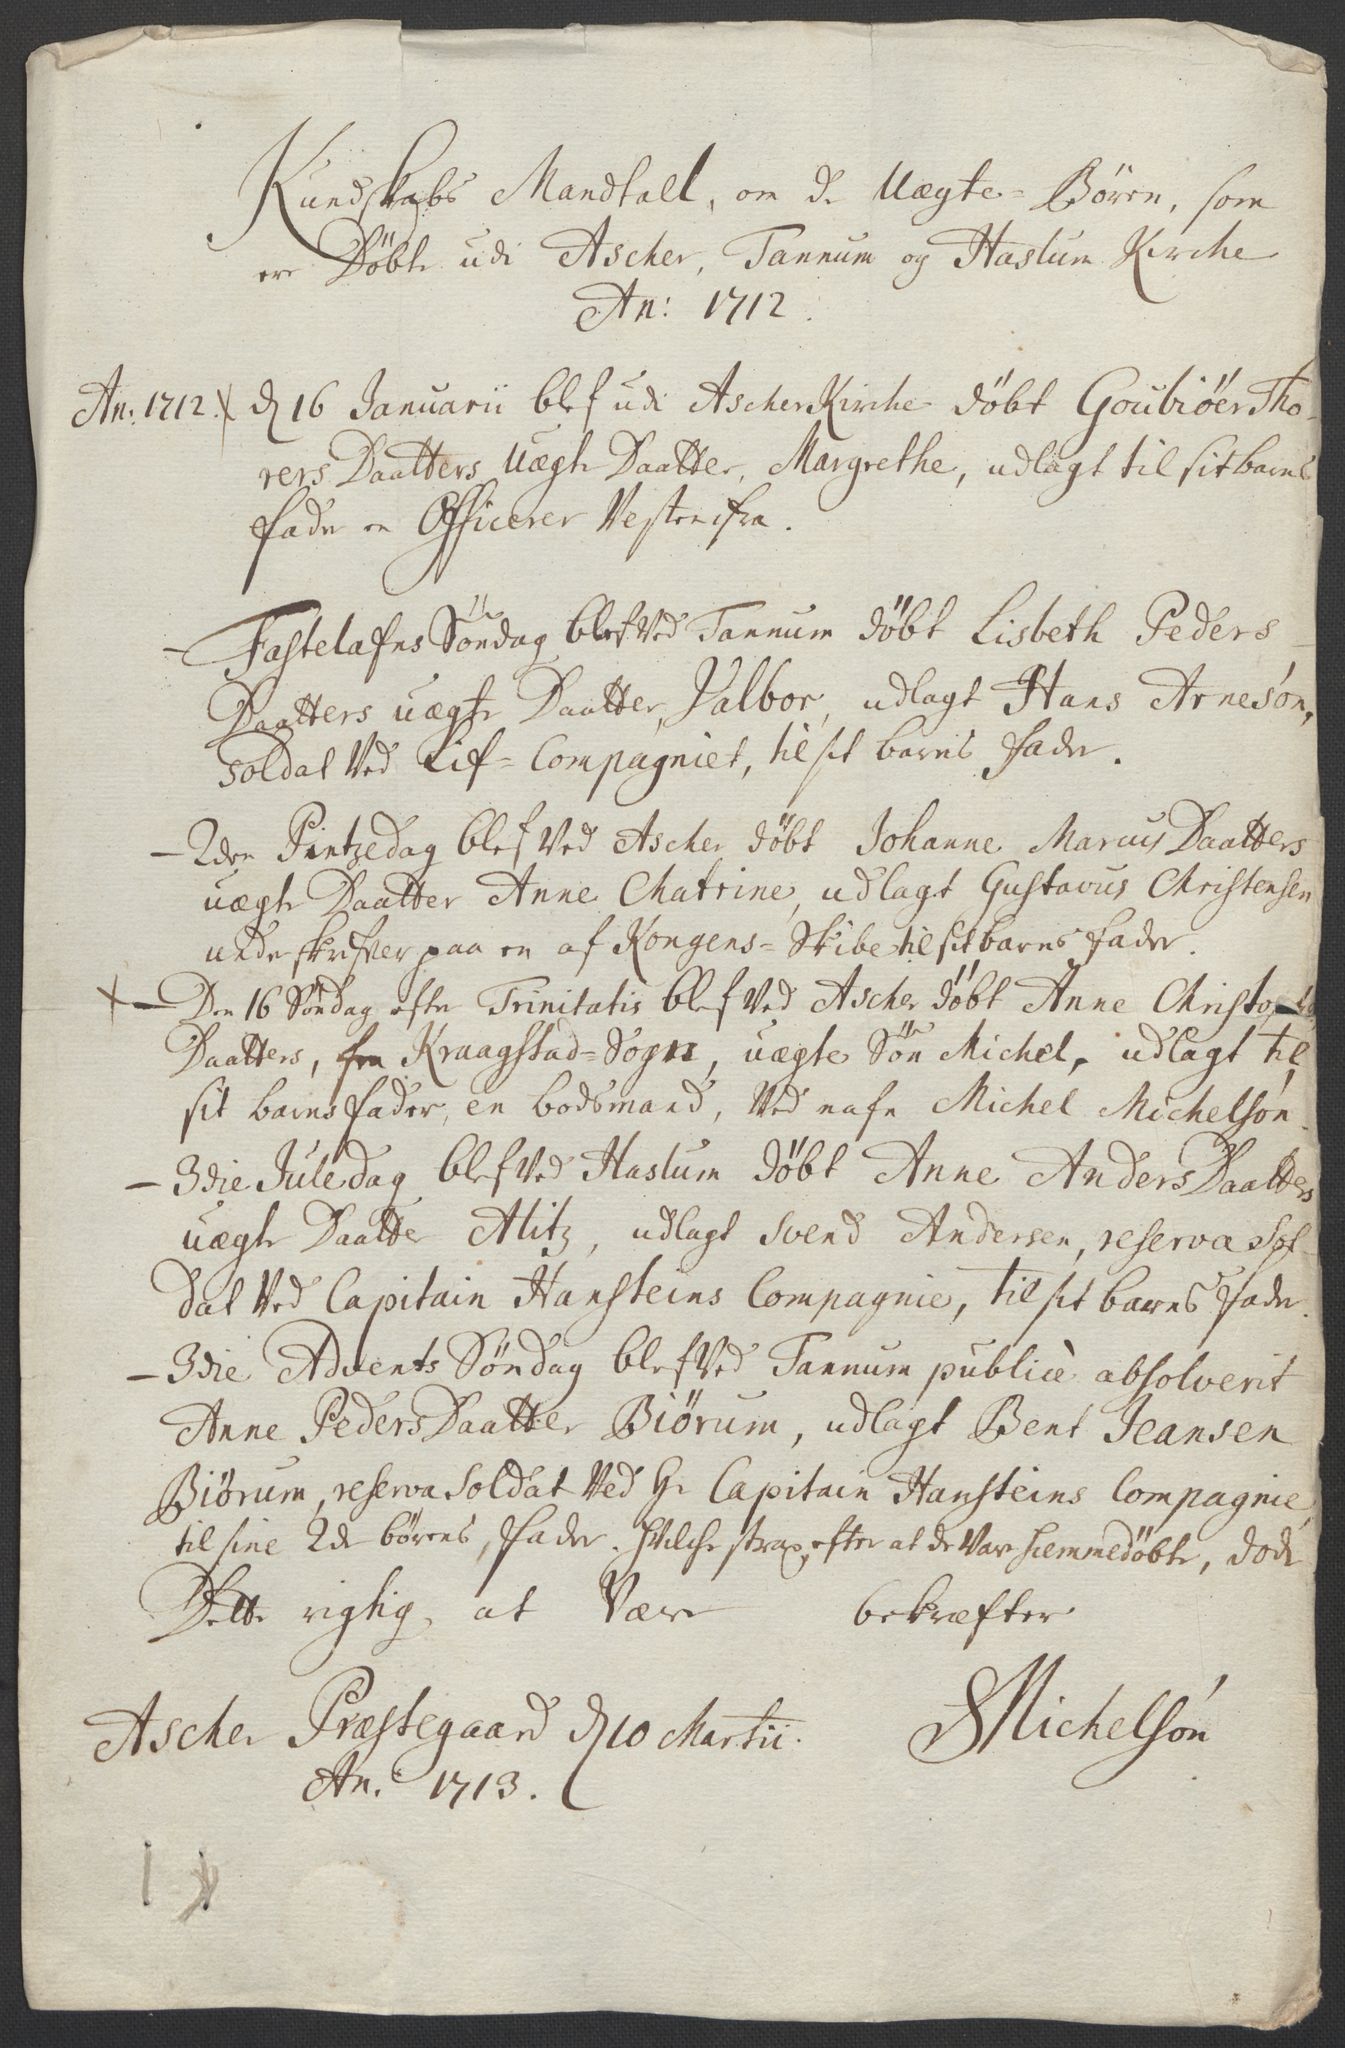 Kundskabs Mandtall, om de Uægte-Børen, som
ere Døbte udi Ascher, Tannum og Haslum Kirche
An: 1712.
An: 1712. d 16 Januarii blef udi Ascher Kirche døbt Goubiöer Tho-
rers Daatters Uægte Daatter, Margrethe, udlagt til sit barns
fader en Officerer Vestenifra.
- Fastelafns Søndag blef Ved Tannum døbt Lisbeth Peders
Daatters uægte Daatter, Valbor, udlagt Hans Arnesøn,
soldat Ved Lif-Compagniet, til sit barns fader.
- 2den Pintzedag blef Ved Ascher døbt Johanne Marcus Daatters
uægte Daatter Anne Chatrine, udlagt Gustavus Christensen
underskrifver paa en af Kongens-Skibe til sit barns fader.
- Den 16 Søndag efter Trinitatis blef Ved Ascher døbt Anne
Daatters, fra Kraagstad-Sogn, uægte Søn Michel, udlagt til
sit barns fader, en bodsmand, Ved nafn Michel Michelsøn
- 3die Juledag blef Ved Haslum døbt Anne Anders Daatters
uægte Daatter Alitz, udlagt Svend Andersen, reserva Sol-
dat Ved Capitain Hansteins Compagnie, til sit barns fader.
- 3die Advents Søndag blef Ved Tannum publicè absolverit
Anne Peders Daatter Biörum, udlagt Bent Jeansen
Biörum, reserva Soldat Ved Hr Capitain Hansteins Compagnie,
til sine 2de børens, fader. hvilche strax, efter at de Vare hiemmedøbte, døde
Dette rigtig at Være bekræfter
Ascher Præstegaard d 10 Martii. SMichelsøn
An: 1713.